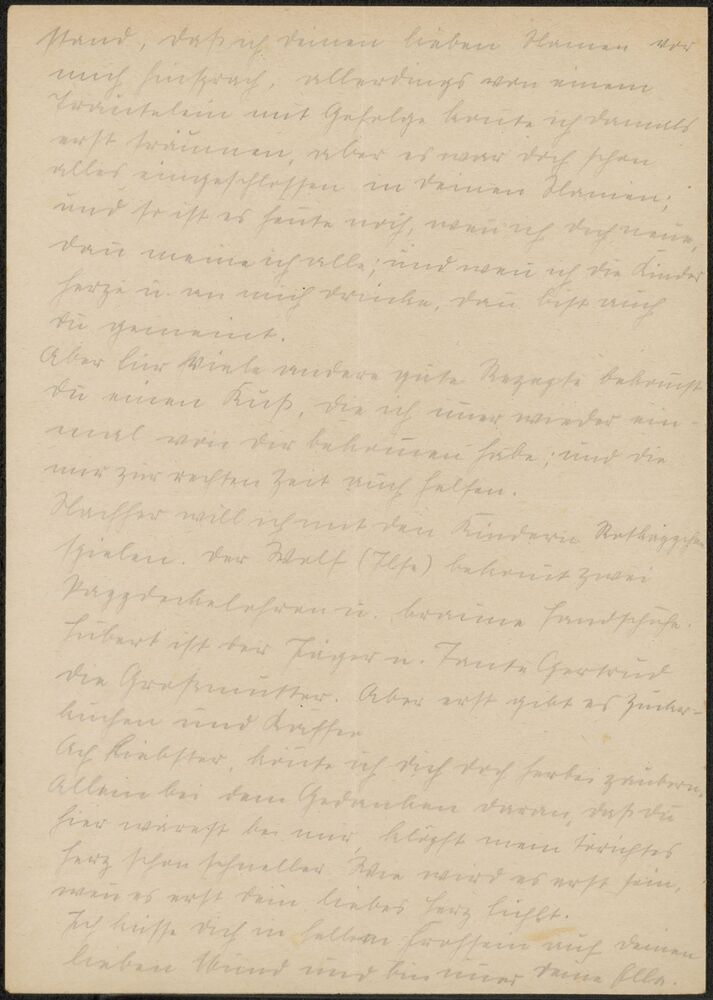 stand, daß ich deinen lieben Namen vor
mich hinsprach, allerdings von einem
Trautelein mit Gefolge konte ich damals
erst träumen, aber es war doch schon
alles eingeschlossen in deinen Namen;
und so ist es heute noch, wen ich dich nene,
dan meine ich alle; und wen ich die Kinder
herze u. an mich drücke, dan bist auch
du gemeint.
Aber für Viele andere gute Rezepte bekomst
du einen Kuß, die ich imer wieder ein-
mal von dir bekomen habe; und die
mir zur rechten Zeit auch helfen.
Nachher will ich mit den Kindern Rotkäppchen
spielen. Der Wolf (Ilse) bekomt zwei
Pappdeckelohren u. braune Handschuhe.
Hubert ist der Jäger u. Tante Gertrud
die Großmutter. Aber erst gibt es Zucker-
kuchen und Kaffee
Ach Liebster, könte ich dich doch herbei zaubern.
Allein bei dem Gedanken daran, daß du
hier wärest bei mir, klopft mein törichtes
Herz schon schneller. Wie wird es erst sein,
wen es erst dein liebes Herz fühlt.
Ich küsse dich in hellem Frohsein auf deinen
lieben Mund und bin imer deine Ella.